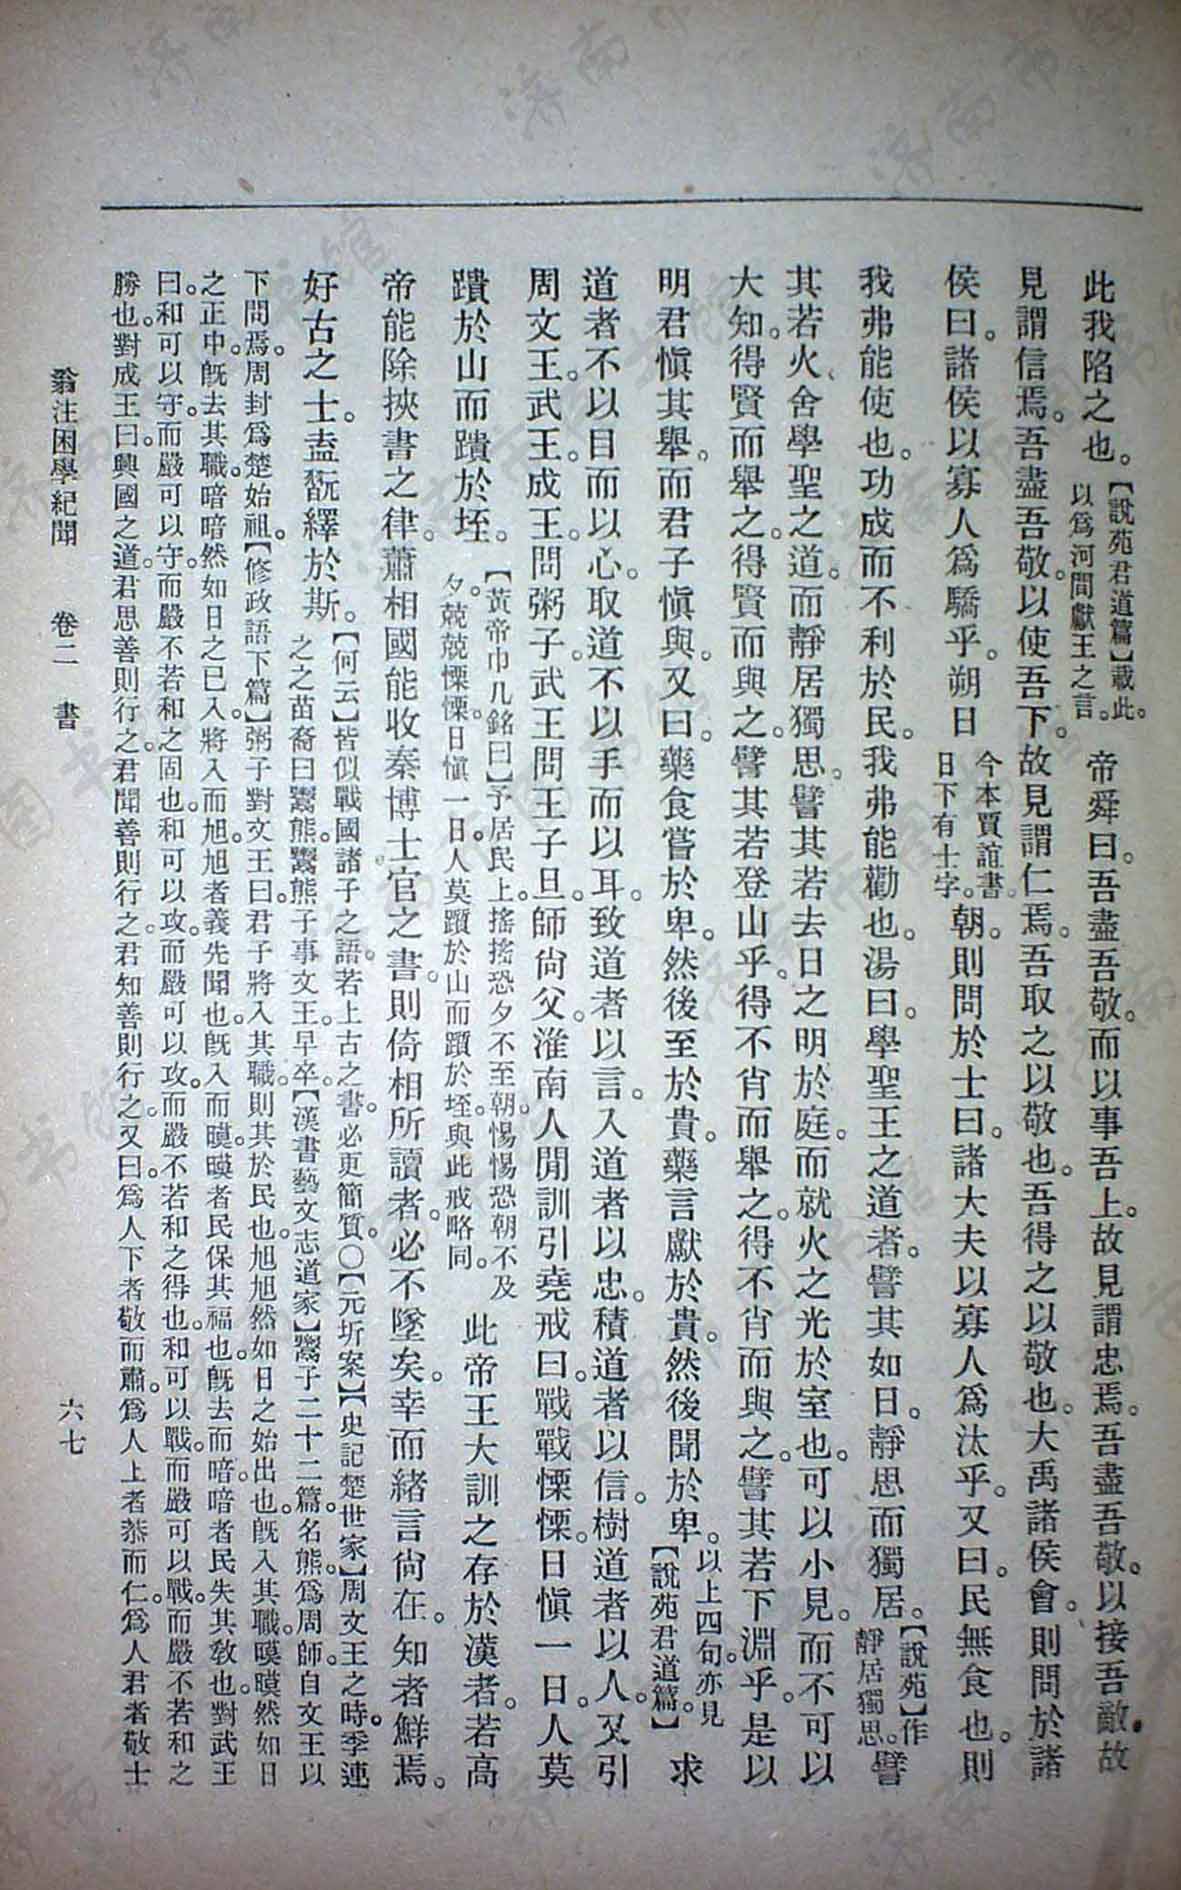 此我陷之也。【說苑君道篇】載此。以爲河間獻王之言。帝舜曰。吾盡吾敬。而以事吾上。故見謂忠焉。吾盡吾敬。以接吾敵。故
見謂信焉。吾盡吾敬。以使吾下。故見謂仁焉。吾取之以敬也。吾得之以敬也。大禹諸侯會。則問於諸
侯曰。諸侯以寡人爲驕乎。朔日今本賈誼書。日下有士字。朝則問於士曰。諸大夫以寡人爲汰乎。又曰。民無食也。則
我弗能使也。功成而不利於民。我弗能勸也。湯曰。學聖王之道者。譬其如日。靜思而獨居。【說苑】作靜居獨思。譬
其若火。舍學聖之道。而靜居獨思。譬其若去日之明於庭。而就火之光於室也。可以小見。而不可以
大知。得賢而舉之。得賢而與之。譬其若登山乎。得不肖而舉之。得不肖而與之。譬其若下淵乎。是以
明君愼其舉。而君子愼與。又曰。藥食嘗於卑。然後至於貴。藥言獻於貴。然後聞於卑。以上四句亦見【說苑君道篇】。求
道者不以目而以心。取道不以手而以耳。致道者以言。入道者以忠。積道者以信。樹道者以人。又引
周文王。武王。成王。問粥子。武王問王子旦。師尙父。淮南人閒訓引堯戒曰。戰戰慄慄。日愼一日。人莫
蹪於山而蹪於垤。【黃帝巾几銘曰】予居民上。搖搖恐夕不至朝。惕惕恐朝不及夕。兢兢慄慄。日愼一日。人莫躓於山而躓於垤。與此戒略同。此帝王大訓之存於漢者。若高
帝能除挾書之律。蕭相國能收秦博士官之書。則倚相所讀者。必不墜矣。幸而緒言尙在。知者鮮焉。
好古之士。盍翫繹於斯。【何云】皆似戰國諸子之語。若上古之書。必更簡質。〇【元圻案】【史記楚世家】周文王之時。季連
之苗裔曰鬻熊。鬻熊子事文王。早卒。【漢書藝文志道家】鬻子二十二篇。名熊。爲周師。自文王以
下問焉。周封爲楚始祖。【修政語下篇】粥子對文王曰。君子將入其職。則其於民也。旭旭然如日之始出也。旣入其職。暯暯然如日
之正中。旣去其職。暗暗然如日之已入。將入而旭。旭者義先聞也。旣入而暯。暯者民保其福也。旣去而暗。暗者民失其敎也。對武王
曰。和可以守。而嚴可以守。而嚴不若和之固也。和可以攻。而嚴可以攻。而嚴不若和之得也。和可以戰。而嚴可以戰。而嚴不若和之
勝也。對成王曰。興國之道。君思善則行之。君聞善則行之。君知善則行之。又曰。爲人下者敬而肅。爲人上者恭而仁。爲人君者敬士
翁注困學紀聞　卷二　書　六七